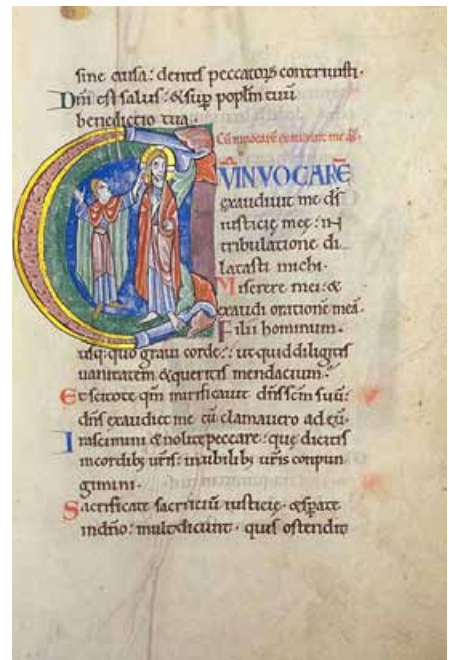 sine causa: dentes peccatorꝫ contriuisti.
Dñi est salus: & suꝑ popl̄m tuū
benedictio tua.
Cū inuocarē exaudiuit me d̄s.
CVINVOCARĒ
exaudiuit me d̄s
iusticię meę: in
tribulatione di
latasti michi.
Miserere mei: &
exaudi orationē meā.
Filii hominum.
usq; quo graui corde: ut quid diligitis
uanitatem & queritis mendacium:
Et scitote qm̄ mirificauit dn̄s sc̄m suū:
dn̄s exaudiet me cū clamauero ad eū.
Irascimini & nolite peccare: quę dicitis
in cordib; ur̄is: in cubilib; ur̄is conpun
gimini.
Sacrificate sacrificiū iusticię. & sperate
in dn̄o: multi dicunt. quis ostendit